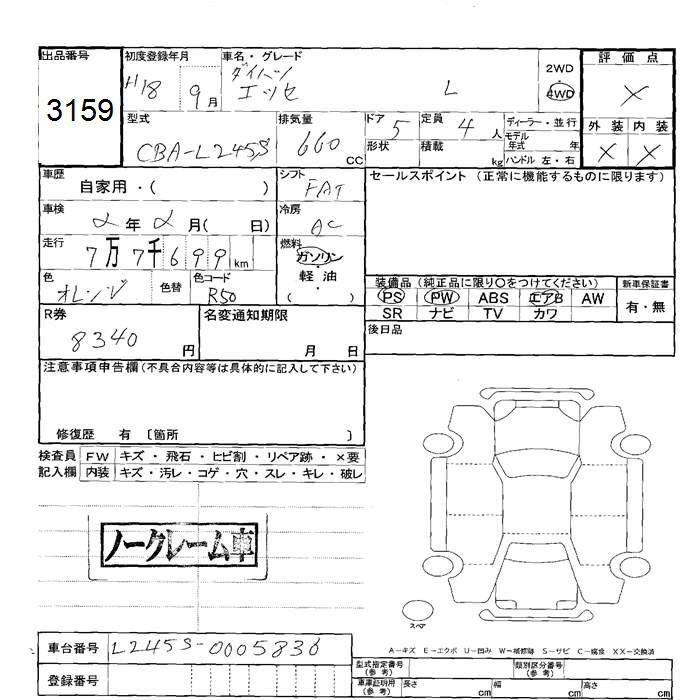 出品番号 初度登録年月 車名・グレード 評価点
3159 H18 9月 ダイハツ エッセ L 2WD 4WD X
型式 排気量 ドア 定員 ディーラー・並行 外装 内装
CBA-L245S 660 CC 5 4人 モデル年式 年 X X
形状 積載 kg ハンドル 左・右
車歴 シフト セールスポイント (正常に機能するものに限ります)
自家用・( ) FAT
車検 冷房
2年2月( 日) AC
走行 燃料
7万7千699km ガソリン・軽油
色 色替 色コード ( )
オレンジ R50
装備品 (純正品に限り○をつけてください) 新車保証書
PS PW ABS エアB AW 有・無
SR ナビ TV カワ
R券 名変通知期限 後日品
8340円 月 日
注意事項申告欄(不具合内容等は具体的に記入して下さい)
修復歴 有 〔箇所 〕
検査員 FW キズ・飛石・ヒビ割・リペア跡・×要
記入欄 内装 キズ・汚レ・コゲ・穴・スレ・キレ・破レ
ノークレーム車
スペア
A-キズ E-エクボ U-凹み W-補修跡 S-サビ C-腐食 XX-交換済
車台番号 L245S-0005830
登録番号
型式指定番号(参考) 類別区分番号(参考)
車庫証明用(参考) 長さ cm 幅 cm 高さ cm